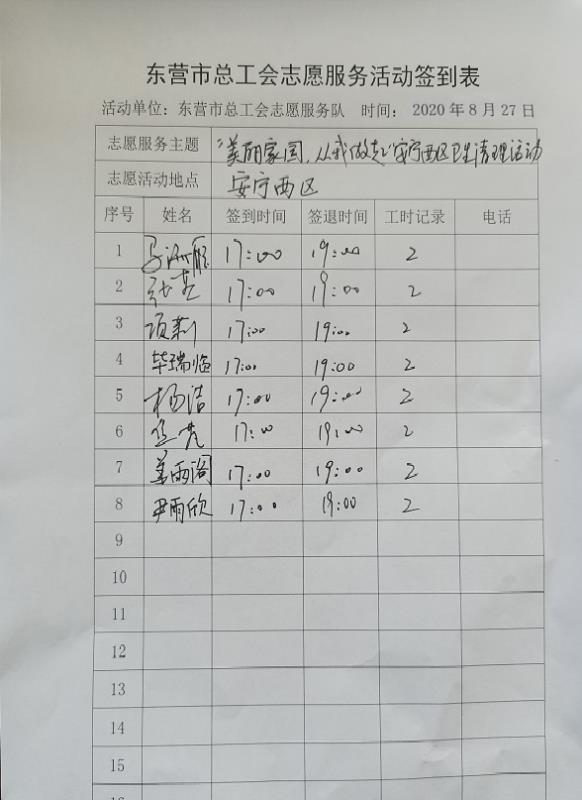 东营市总工会志愿服务活动签到表
活动单位：东营市总工会志愿服务队 时间： 2020年8月27日
志愿服务主题 “美丽家园,从我做起”安宁西区卫生清理活动
志愿活动地点 安宁西区
序号 姓名 签到时间 签退时间 工时记录 电话
1 17:00 19:00 2
2 张 17:00 19:00 2
3 项莉 17:00 19:00 2
4 毕瑞临 17:00 19:00 2
5 杨洁 17:00 19:00 2
6 17:00 19:00 2
7 姜雨阁 17:00 19:00 2
8 尹雨欣 17:00 19:00 2
9
10
11
12
13
14
15